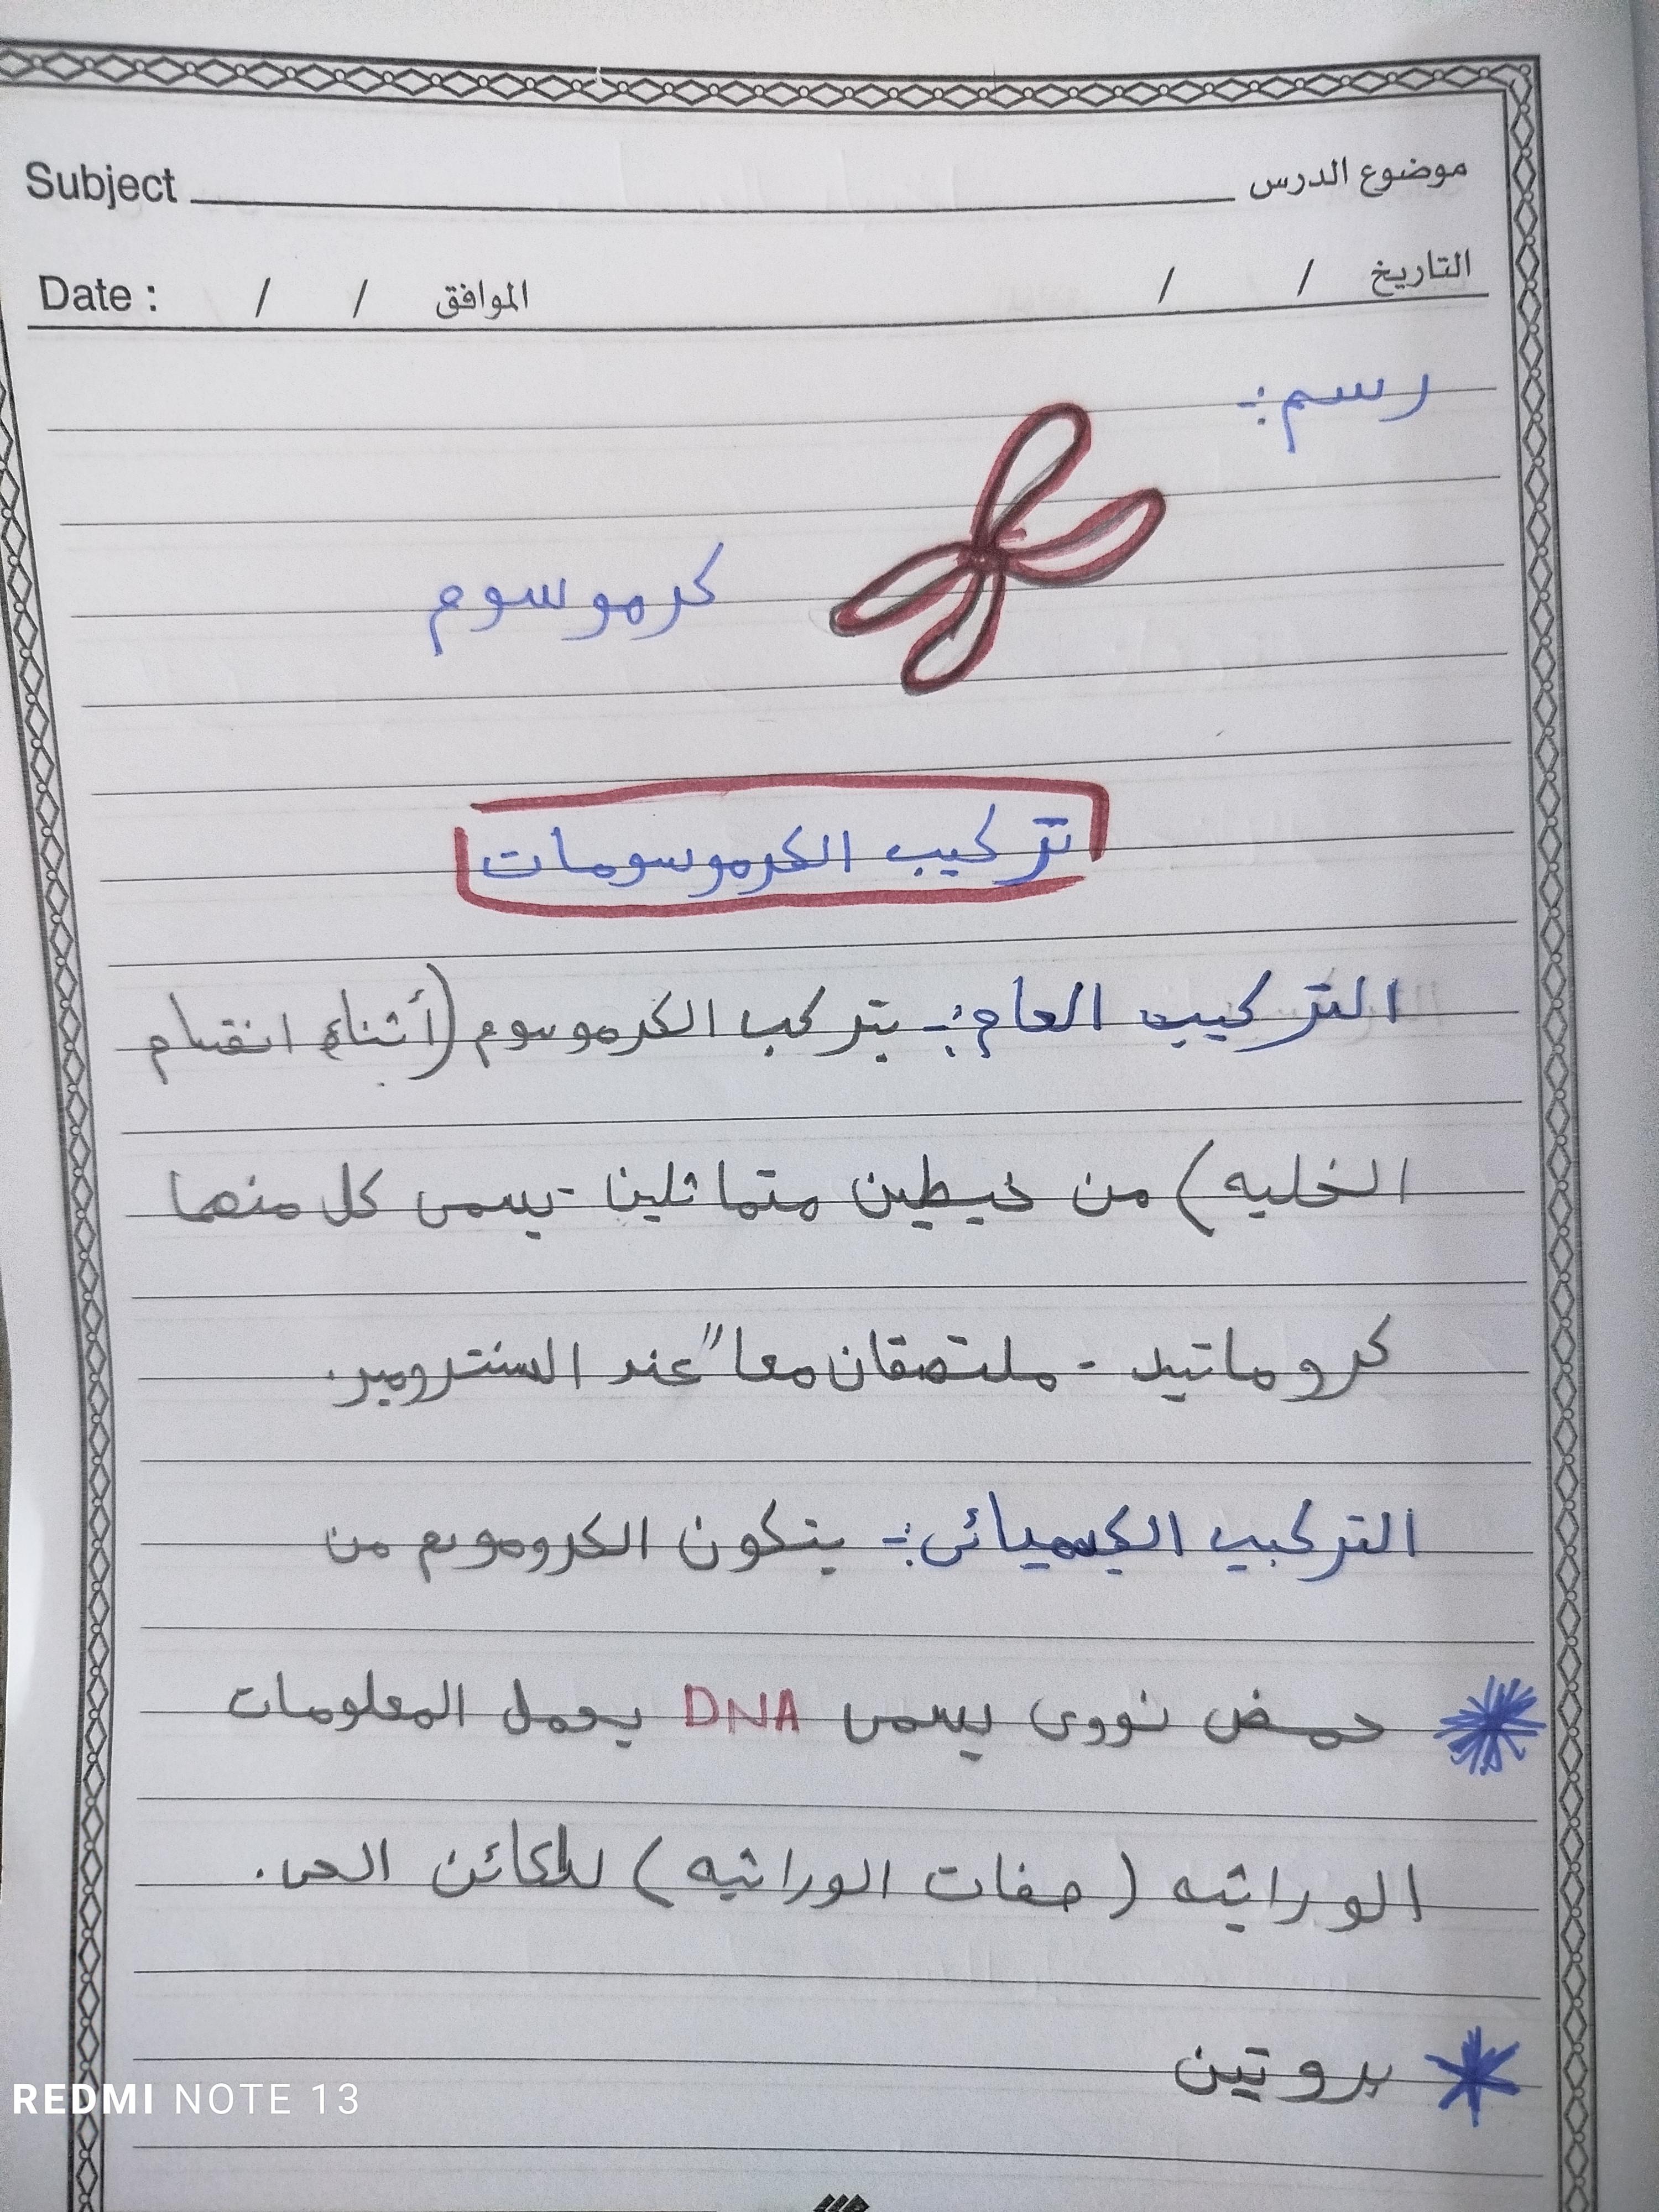 Subject موضوع الدرس
Date : / / الموافق / / التاريخ
رسم :-
كرموسوم
تركيب الكرموسومات
التركيب العام :- يتركب الكرموسوم (أثناء انقسام
الخليه) من خيطين متماثلين - يسمى كل منهما
كروماتيد - ملتصقان معا" عند السنترومير.
التركيب الكيميائى :- يتكون الكروموسوم من
* حمض نووى يسمى DNA يحمل المعلومات
الوراثيه (صفات الوراثيه) للكائن الحى.
* بروتين
REDMI NOTE 13